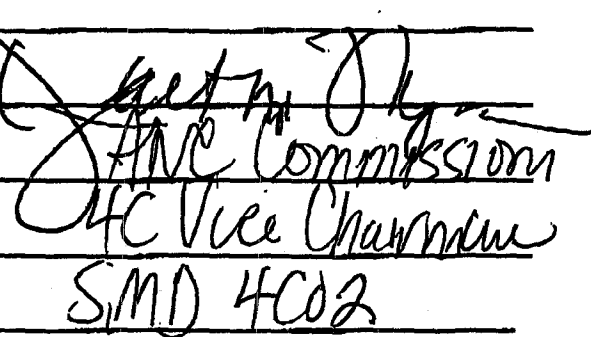 ANC Commission
4C Vice Chairman
SMD 4C02